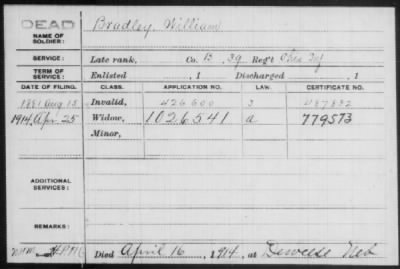 DEAD
NAME OF SOLDIER: Bradley, William
SERVICE: Late rank, Co. B, 39 Reg't Ohio Inf
TERM OF SERVICE: Enlisted , 1 Discharged , 1
DATE OF FILING. CLASS. APPLICATION NO. LAW. CERTIFICATE NO.
1881 Aug 15 Invalid, 426600
1914, Apr 25 Widow, 1026541 a 779573
Minor,
ADDITIONAL SERVICES:
REMARKS:
Died April 16, 1914, at Deweese Neb